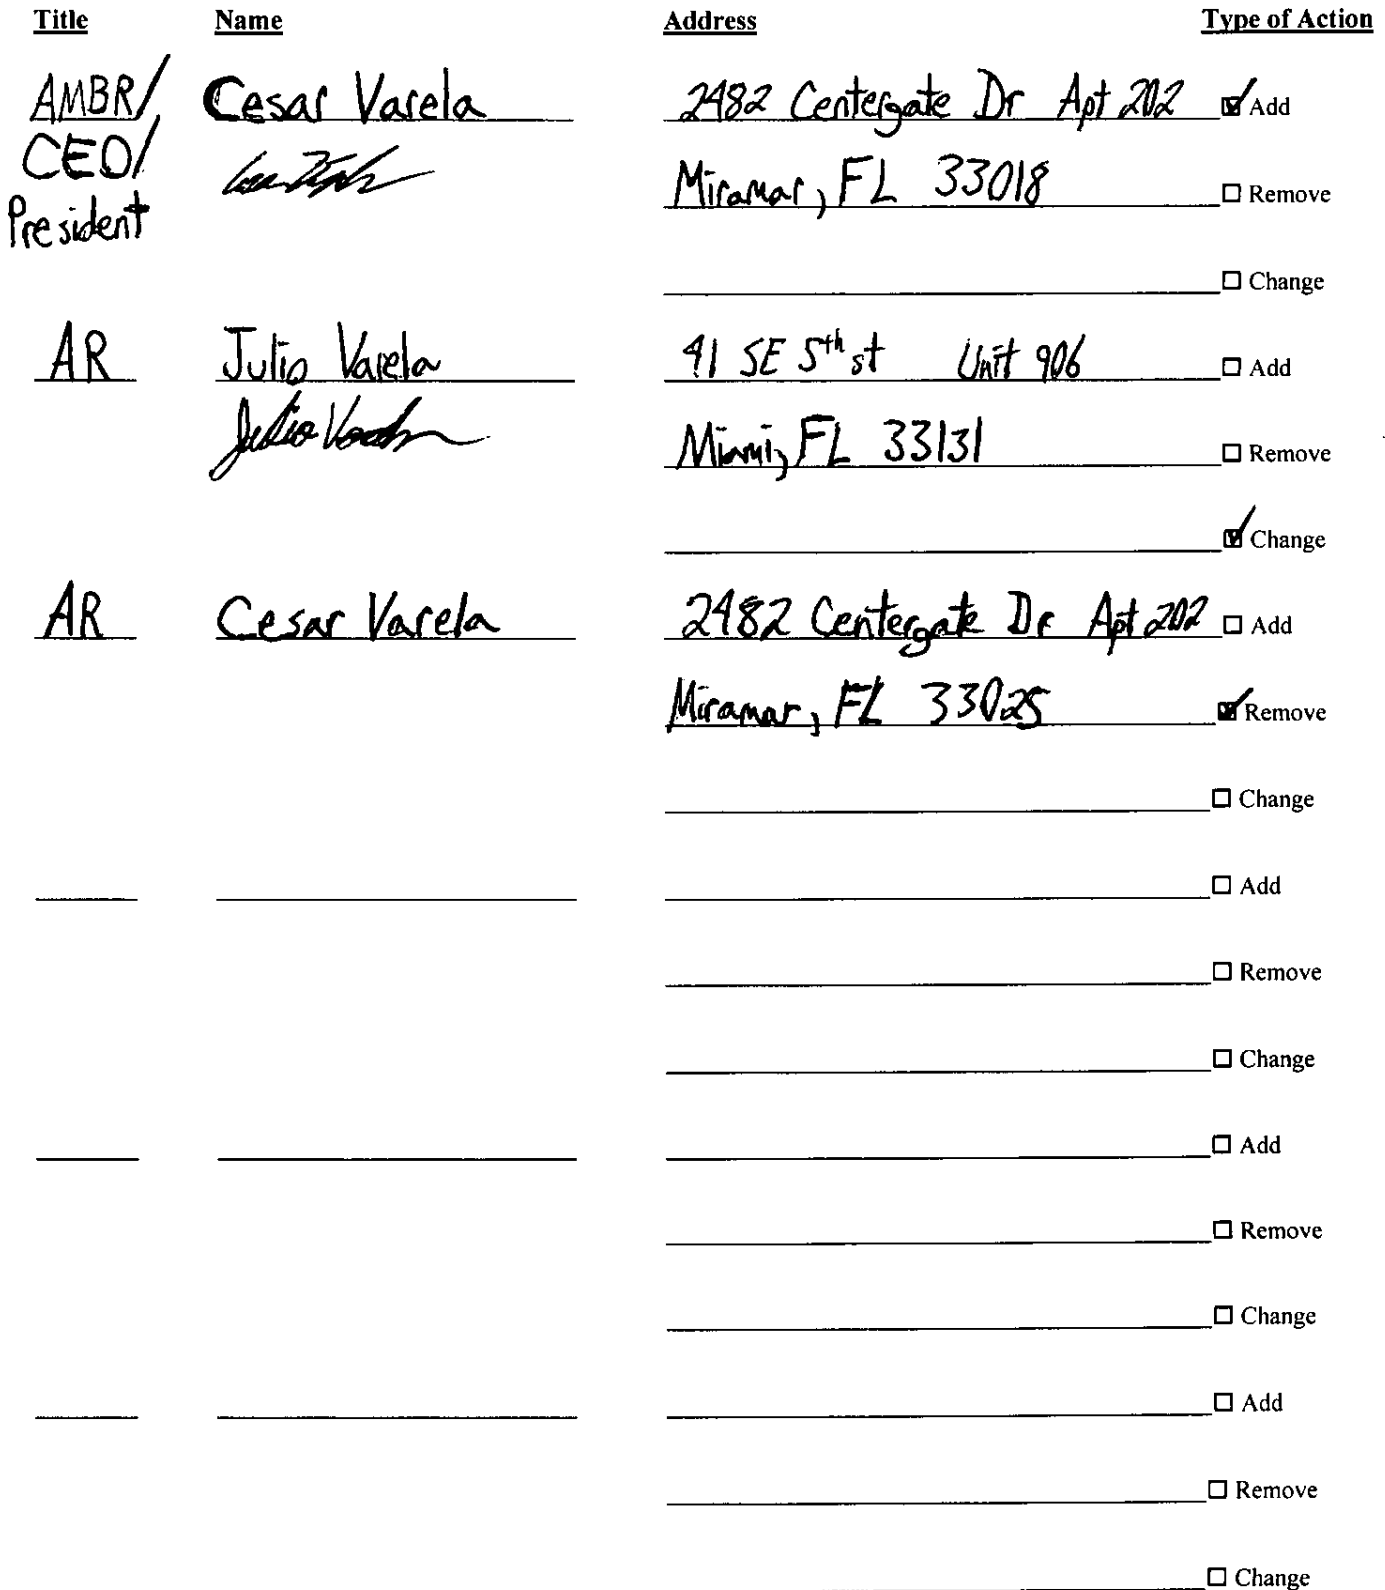 Title Name Address Type of Action
AMBR/ Cesar Varela 2482 Centergate Dr Apt 202 ☑ Add
CEO/
Miramar, FL 33018 ☐ Remove
President
☐ Change
AR Julio Varela 91 SE 5th st Unit 906 ☐ Add
Julio Varela Miami, FL 33131 ☐ Remove
☑ Change
AR Cesar Varela 2482 Centergate Dr Apt 202 ☐ Add
Miramar, FL 33025 ☑ Remove
☐ Change
☐ Add
☐ Remove
☐ Change
☐ Add
☐ Remove
☐ Change
☐ Add
☐ Remove
☐ Change